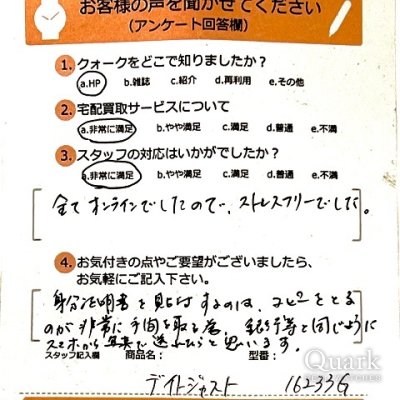 お客様の声を聞かせてください
(アンケート回答欄)
1. クォークをどこで知りましたか？
a.HP b.雑誌 c.紹介 d.再利用 e.その他
2. 宅配買取サービスについて
a.非常に満足 b.やや満足 c.満足 d.普通 e.不満
3. スタッフの対応はいかがでしたか？
a.非常に満足 b.やや満足 c.満足 d.普通 e.不満
全てオンラインでしたので、ストレスフリーでした。
4. お気付きの点やご要望がございましたら、
お気軽にご記入下さい。
身分証明書を貼付するのは、コピーをとる
のが非常に手間を取る為、銀行等と同じように
スマホから写真で送れたらと思います。
スタッフ記入欄 商品名： 型番：
デイトジャスト 16233G
Quark